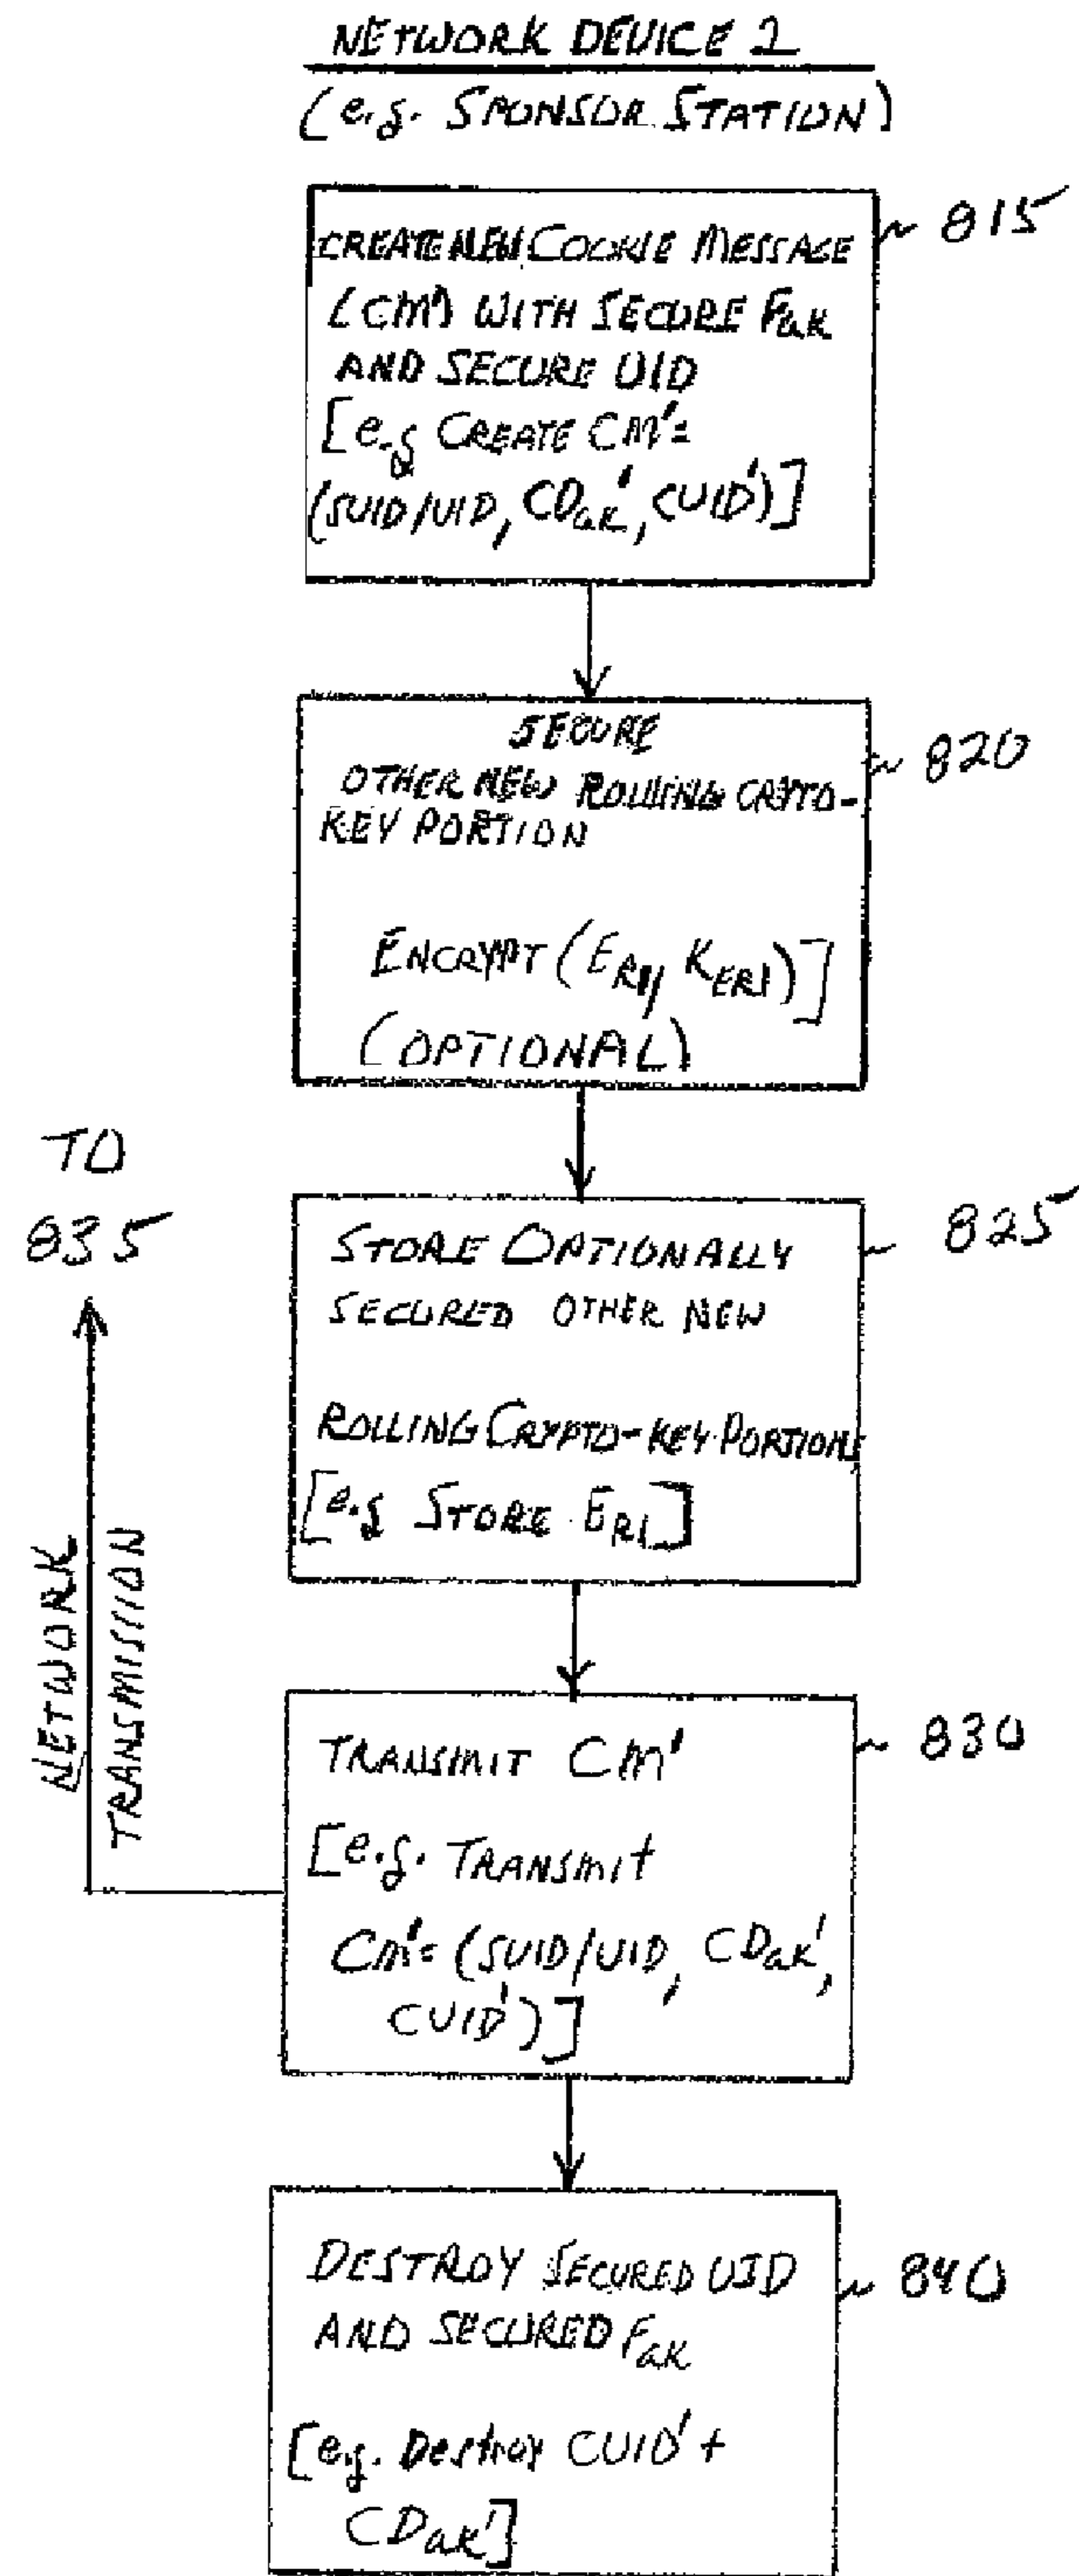 NETWORK DEVICE 2
(e.g. SPONSOR STATION)
CREATE NEW COOKIE MESSAGE
(CM') WITH SECURE Fak
AND SECURE UID
[e.g CREATE CM'=
(SUID/UID, CDak', CUID')]
815
SECURE
OTHER NEW ROLLING CRYPTO-
KEY PORTION
ENCRYPT (ER1, KER1)]
(OPTIONAL)
820
TO
835
STORE OPTIONALLY
SECURED OTHER NEW
ROLLING CRYPTO-KEY PORTIONS
[e.g STORE ER1]
825
NETWORK
TRANSMISSION
TRANSMIT CM'
[e.g. TRANSMIT
CM'= (SUID/UID, CDak',
CUID')]
830
DESTROY SECURED UID
AND SECURED Fak
[e.g. Destroy CUID' +
CDak']
840